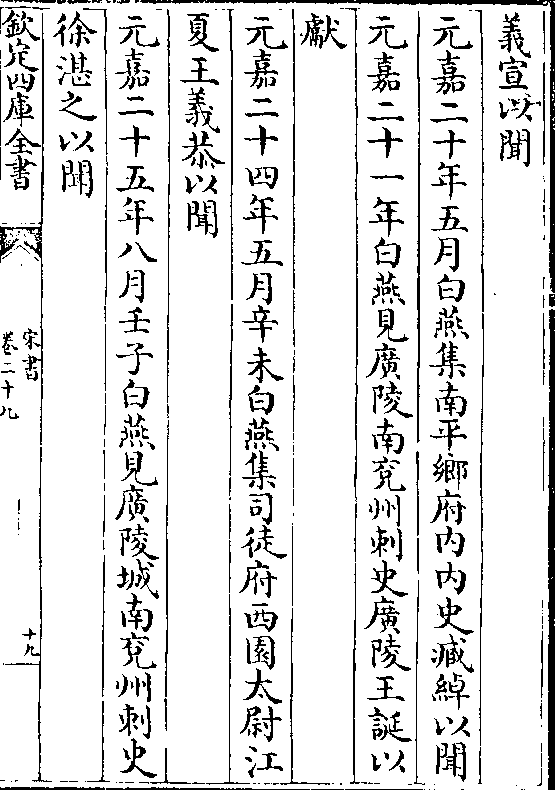 義宣以聞
元嘉二十年五月白燕集南平鄉府内内史臧綽以聞
元嘉二十一年白燕見廣陵南兖州刺史廣陵王誕以
獻
元嘉二十四年五月辛未白燕集司徒府西園太尉江
夏王義恭以聞
元嘉二十五年八月壬子白燕見廣陵城南兖州刺史
徐湛之以聞
欽定四庫全書
宋書
卷二十九
十九